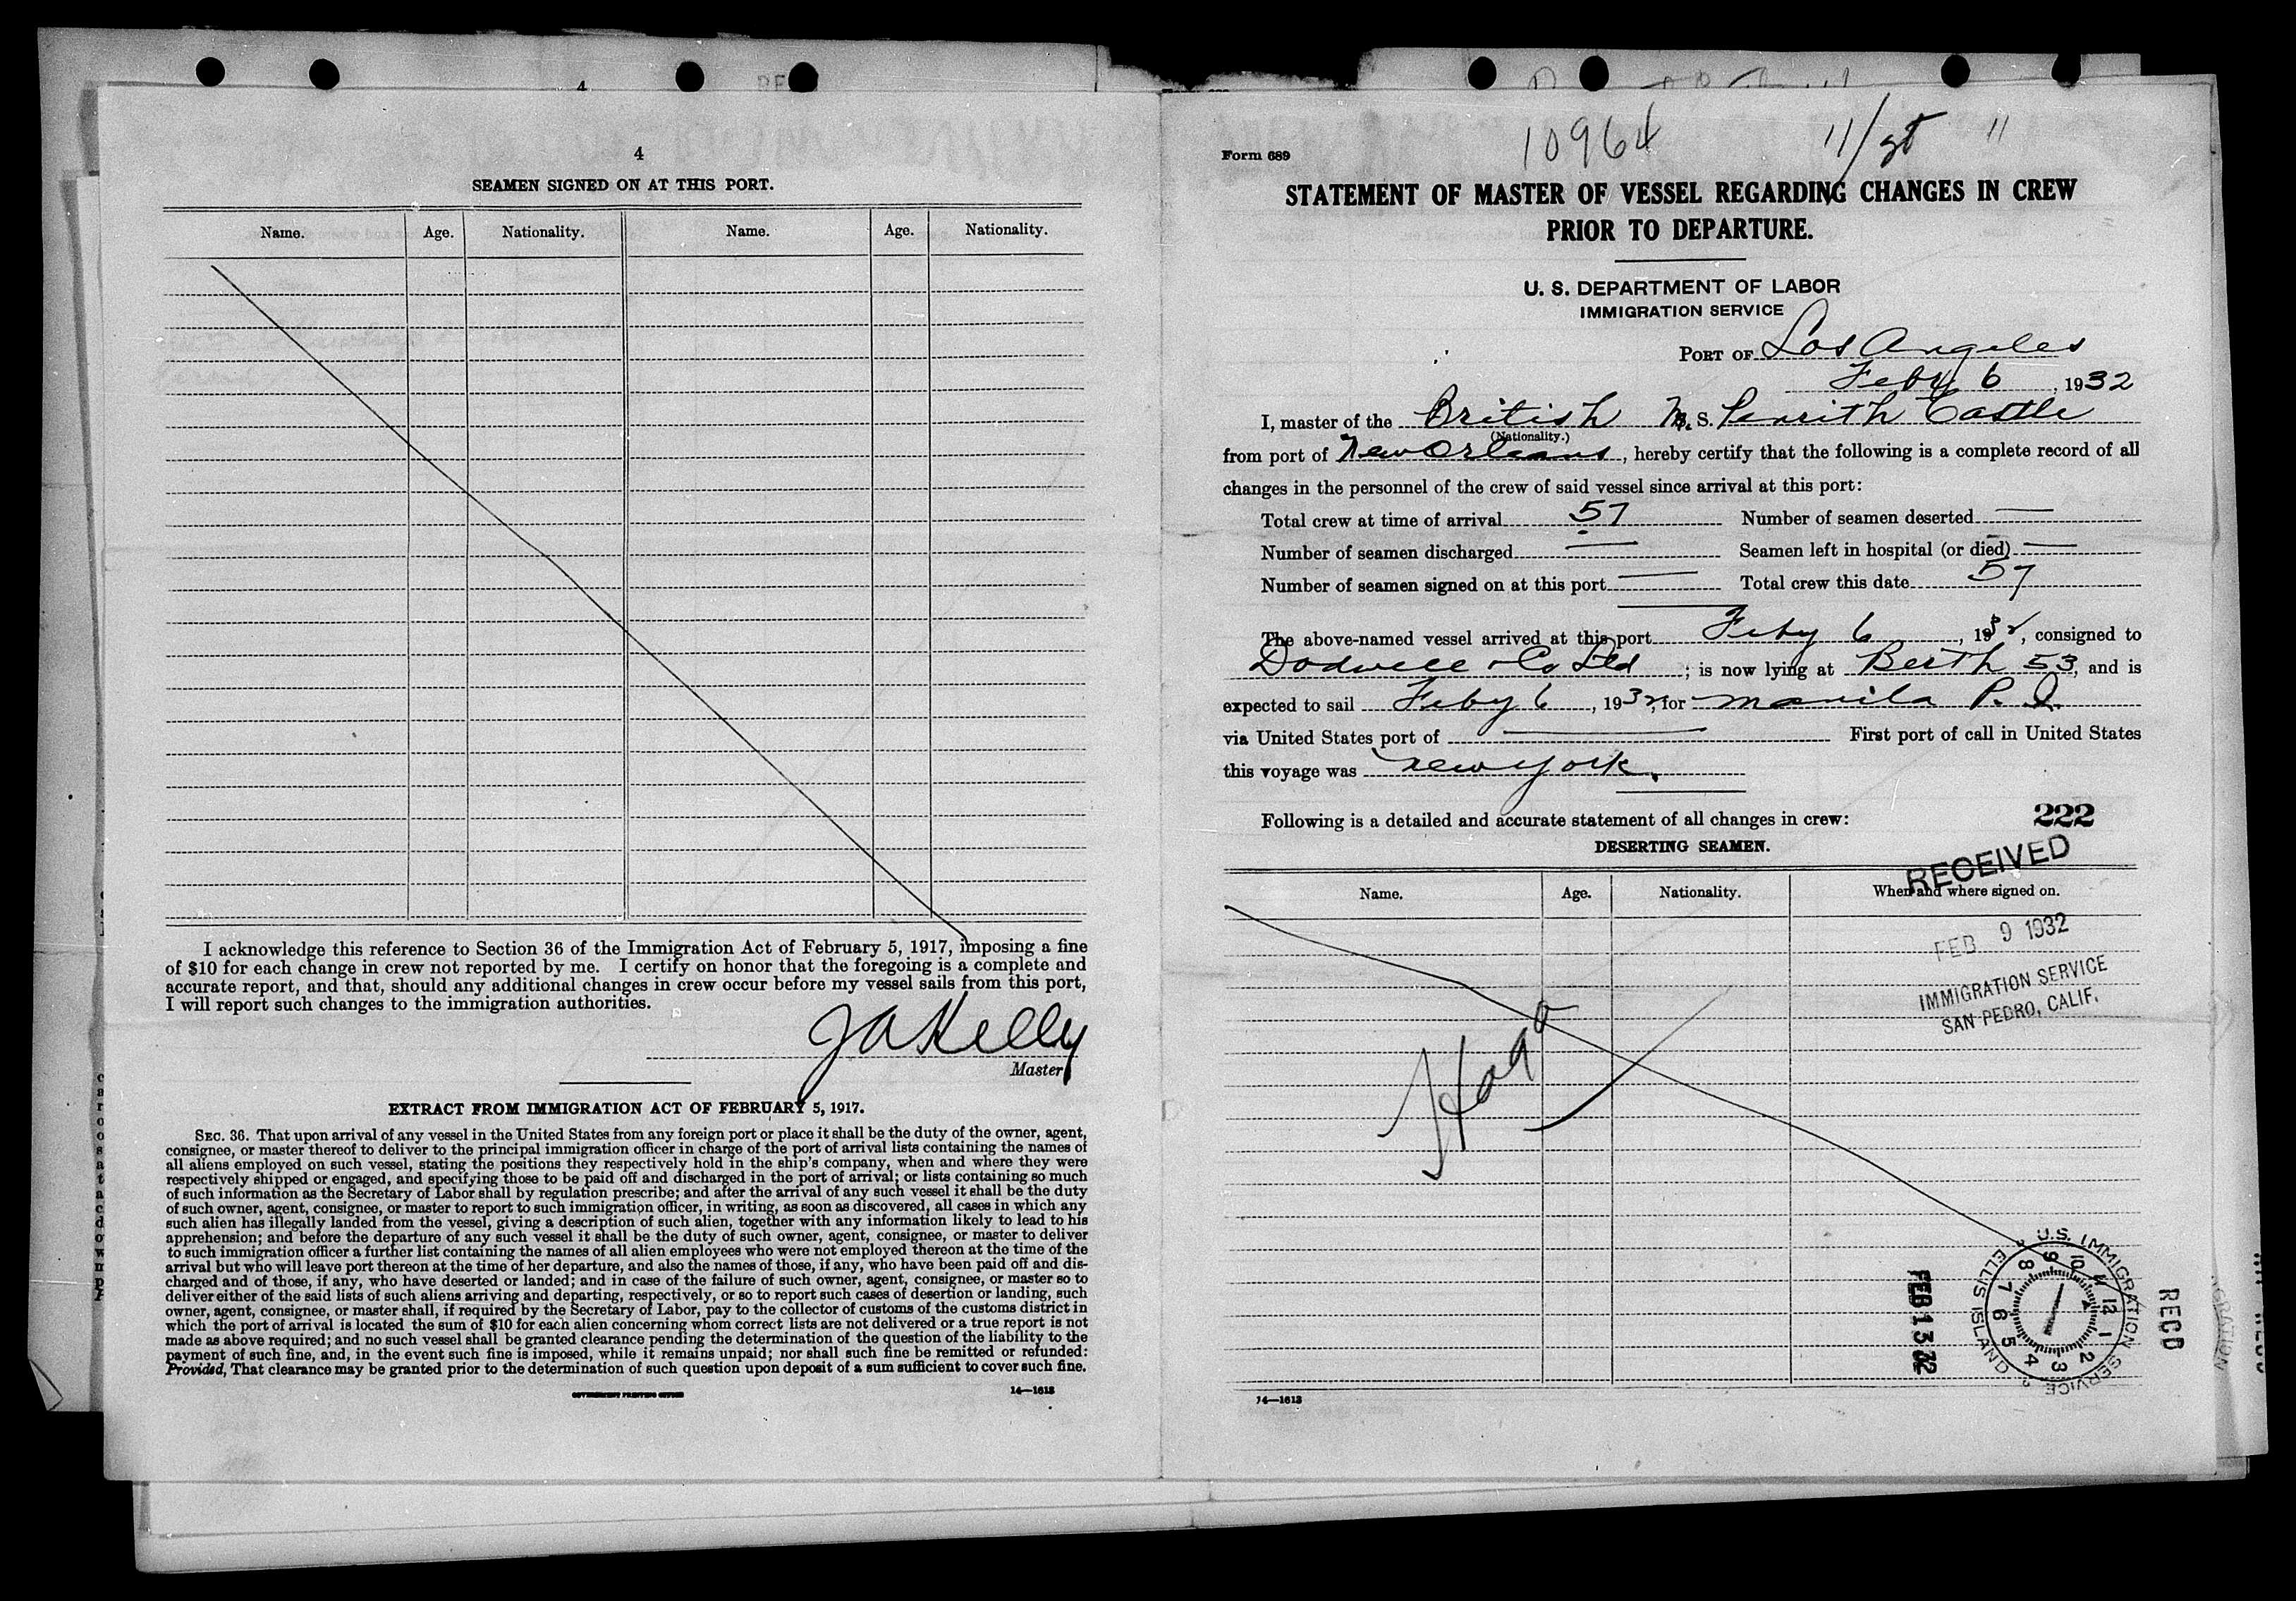 4
SEAMEN SIGNED ON AT THIS PORT.
Name. Age. Nationality. Name. Age. Nationality.
I acknowledge this reference to Section 36 of the Immigration Act of February 5, 1917, imposing a fine
of $10 for each change in crew not reported by me. I certify on honor that the foregoing is a complete and
accurate report, and that, should any additional changes in crew occur before my vessel sails from this port,
I will report such changes to the immigration authorities.
J A Kelly
Master
EXTRACT FROM IMMIGRATION ACT OF FEBRUARY 5, 1917.
SEC. 36. That upon arrival of any vessel in the United States from any foreign port or place it shall be the duty of the owner, agent,
consignee, or master thereof to deliver to the principal immigration officer in charge of the port of arrival lists containing the names of
all aliens employed on such vessel, stating the positions they respectively hold in the ship's company, when and where they were
respectively shipped or engaged, and specifying those to be paid off and discharged in the port of arrival; or lists containing so much
of such information as the Secretary of Labor shall by regulation prescribe; and after the arrival of any such vessel it shall be the duty
of such owner, agent, consignee, or master to report to such immigration officer, in writing, as soon as discovered, all cases in which any
such alien has illegally landed from the vessel, giving a description of such alien, together with any information likely to lead to his
apprehension; and before the departure of any such vessel it shall be the duty of such owner, agent, consignee, or master to deliver
to such immigration officer a further list containing the names of all alien employees who were not employed thereon at the time of the
arrival but who will leave port thereon at the time of her departure, and also the names of those, if any, who have been paid off and dis-
charged and of those, if any, who have deserted or landed; and in case of the failure of such owner, agent, consignee, or master so to
deliver either of the said lists of such aliens arriving and departing, respectively, or so to report such cases of desertion or landing, such
owner, agent, consignee, or master shall, if required by the Secretary of Labor, pay to the collector of customs of the customs district in
which the port of arrival is located the sum of $10 for each alien concerning whom correct lists are not delivered or a true report is not
made as above required; and no such vessel shall be granted clearance pending the determination of the question of the liability to the
payment of such fine, and, in the event such fine is imposed, while it remains unpaid; nor shall such fine be remitted or refunded:
Provided, That clearance may be granted prior to the determination of such question upon deposit of a sum sufficient to cover such fine.
GOVERNMENT PRINTING OFFICE 14—1613
Form 689
10964 11/
STATEMENT OF MASTER OF VESSEL REGARDING CHANGES IN CREW
PRIOR TO DEPARTURE.
U. S. DEPARTMENT OF LABOR
IMMIGRATION SERVICE
PORT OF Los Angeles
Feby 6, 1932
I, master of the British M. S. Penrith Castle
(Nationality.)
from port of New Orleans, hereby certify that the following is a complete record of all
changes in the personnel of the crew of said vessel since arrival at this port:
Total crew at time of arrival 57 Number of seamen deserted —
Number of seamen discharged — Seamen left in hospital (or died) —
Number of seamen signed on at this port — Total crew this date 57
The above-named vessel arrived at this port Feby 6, 1932, consigned to
Dodwell & Co Ltd; is now lying at Berth 53, and is
expected to sail Feby 6, 1932, for Manila P. I.
via United States port of — First port of call in United States
this voyage was New York.
Following is a detailed and accurate statement of all changes in crew:
222
DESERTING SEAMEN.
RECEIVED
Name. Age. Nationality. When and where signed on.
FEB 9 1932
IMMIGRATION SERVICE
SAN PEDRO, CALIF.
U.S. IMMIGRATION SERVICE ELLIS ISLAND
1 2 3 4 5 6 7 8 9 10 11 12
FEB 13 32
RECD
14—1613